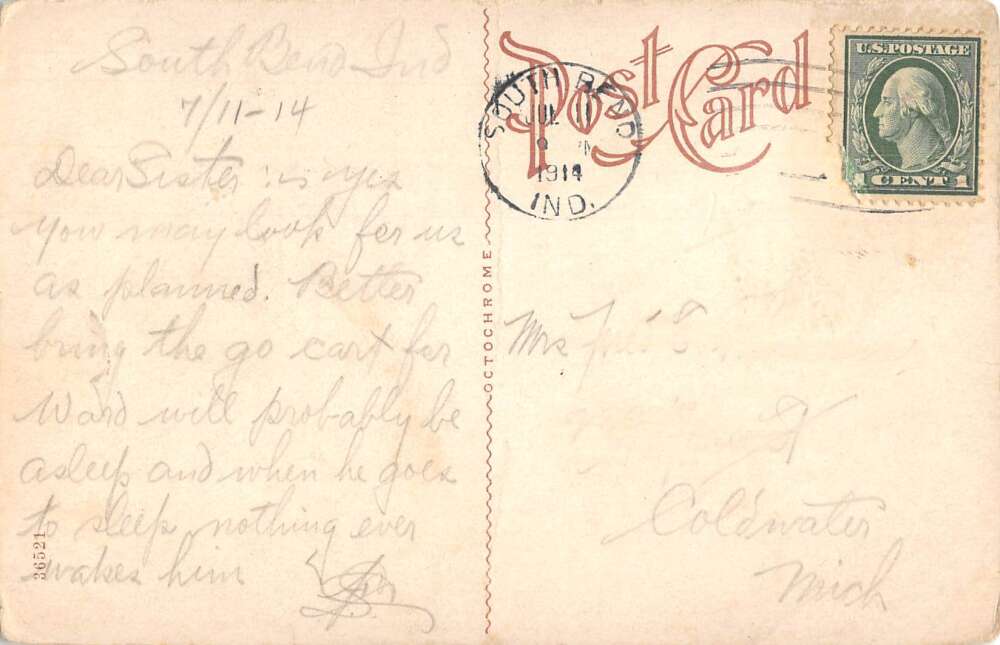 South Bend Ind
7/11-14
Dear Sister:
you may look for us
as planned. Better
bring the go cart for
Ward will probably be
asleep and when he goes
to sleep nothing ever
wakes him
36521
OCTOCHROME
Post Card
SOUTH BEND
JUL 11
1914
IND.
U.S.POSTAGE
1 CENT 1
Mrs
Coldwater
Mich